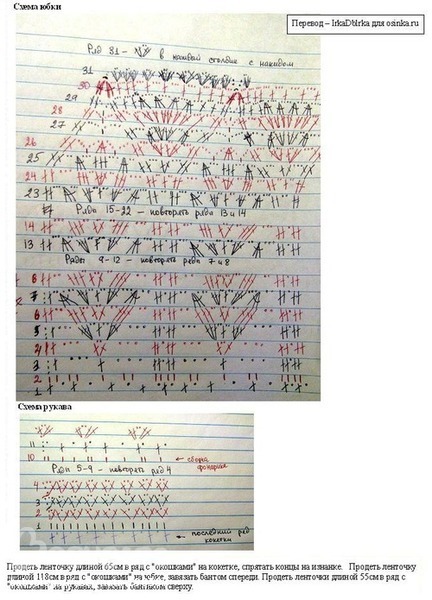 Схема юбки
Перевод – IrkaDbIrka для osinka.ru
Ряд 31 - в каждый столбик с накидом
31
30
29
28
27
26
25
24
23
Ряды 15-22 - повторять ряды 13 и 14
14
13
Ряды 9-12 - повторять ряды 7 и 8
8
7
6
5
4
3
2
1
Схема рукава
11
10
сборка фонарика
Ряды 5-9 - повторять ряд 4
4
3
2
1
последний ряд кокетки
Продеть ленточку длиной 65см в ряд с "окошками" на кокетке, спрятать концы на изнанке. Продеть ленточку
длиной 118см в ряд с "окошками" на юбке, завязать бантом спереди. Продеть ленточки длиной 55см в ряд с
"окошками" на рукавах, завязать бантиком сверху.